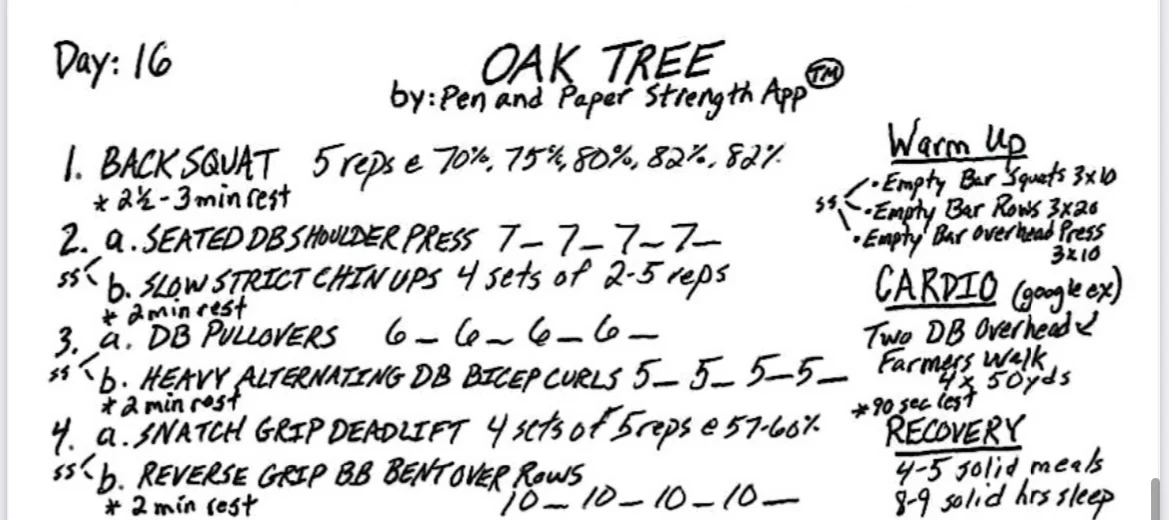 Day: 16
OAK TREE
by: Pen and Paper Strength App TM
1. BACK SQUAT 5 reps @ 70%, 75%, 80%, 82%, 82%
* 2½-3 min rest
2. a. SEATED DB SHOULDER PRESS 7_ 7_ 7_ 7_
ss b. SLOW STRICT CHIN UPS 4 sets of 2-5 reps
* 2 min rest
3. a. DB PULLOVERS 6_ 6_ 6_ 6_
ss b. HEAVY ALTERNATING DB BICEP CURLS 5_ 5_ 5_ 5_
* 2 min rest
4. a. SNATCH GRIP DEADLIFT 4 sets of 5 reps @ 57-60%
ss b. REVERSE GRIP BB BENTOVER ROWS
10_ 10_ 10_ 10_
* 2 min rest
Warm Up
• Empty Bar Squats 3x10
ss • Empty Bar Rows 3x20
• Empty Bar Overhead Press
3x10
CARDIO (google ex)
Two DB Overhead
Farmers Walk
4x 50yds
* 90 sec rest
RECOVERY
4-5 solid meals
8-9 solid hrs sleep